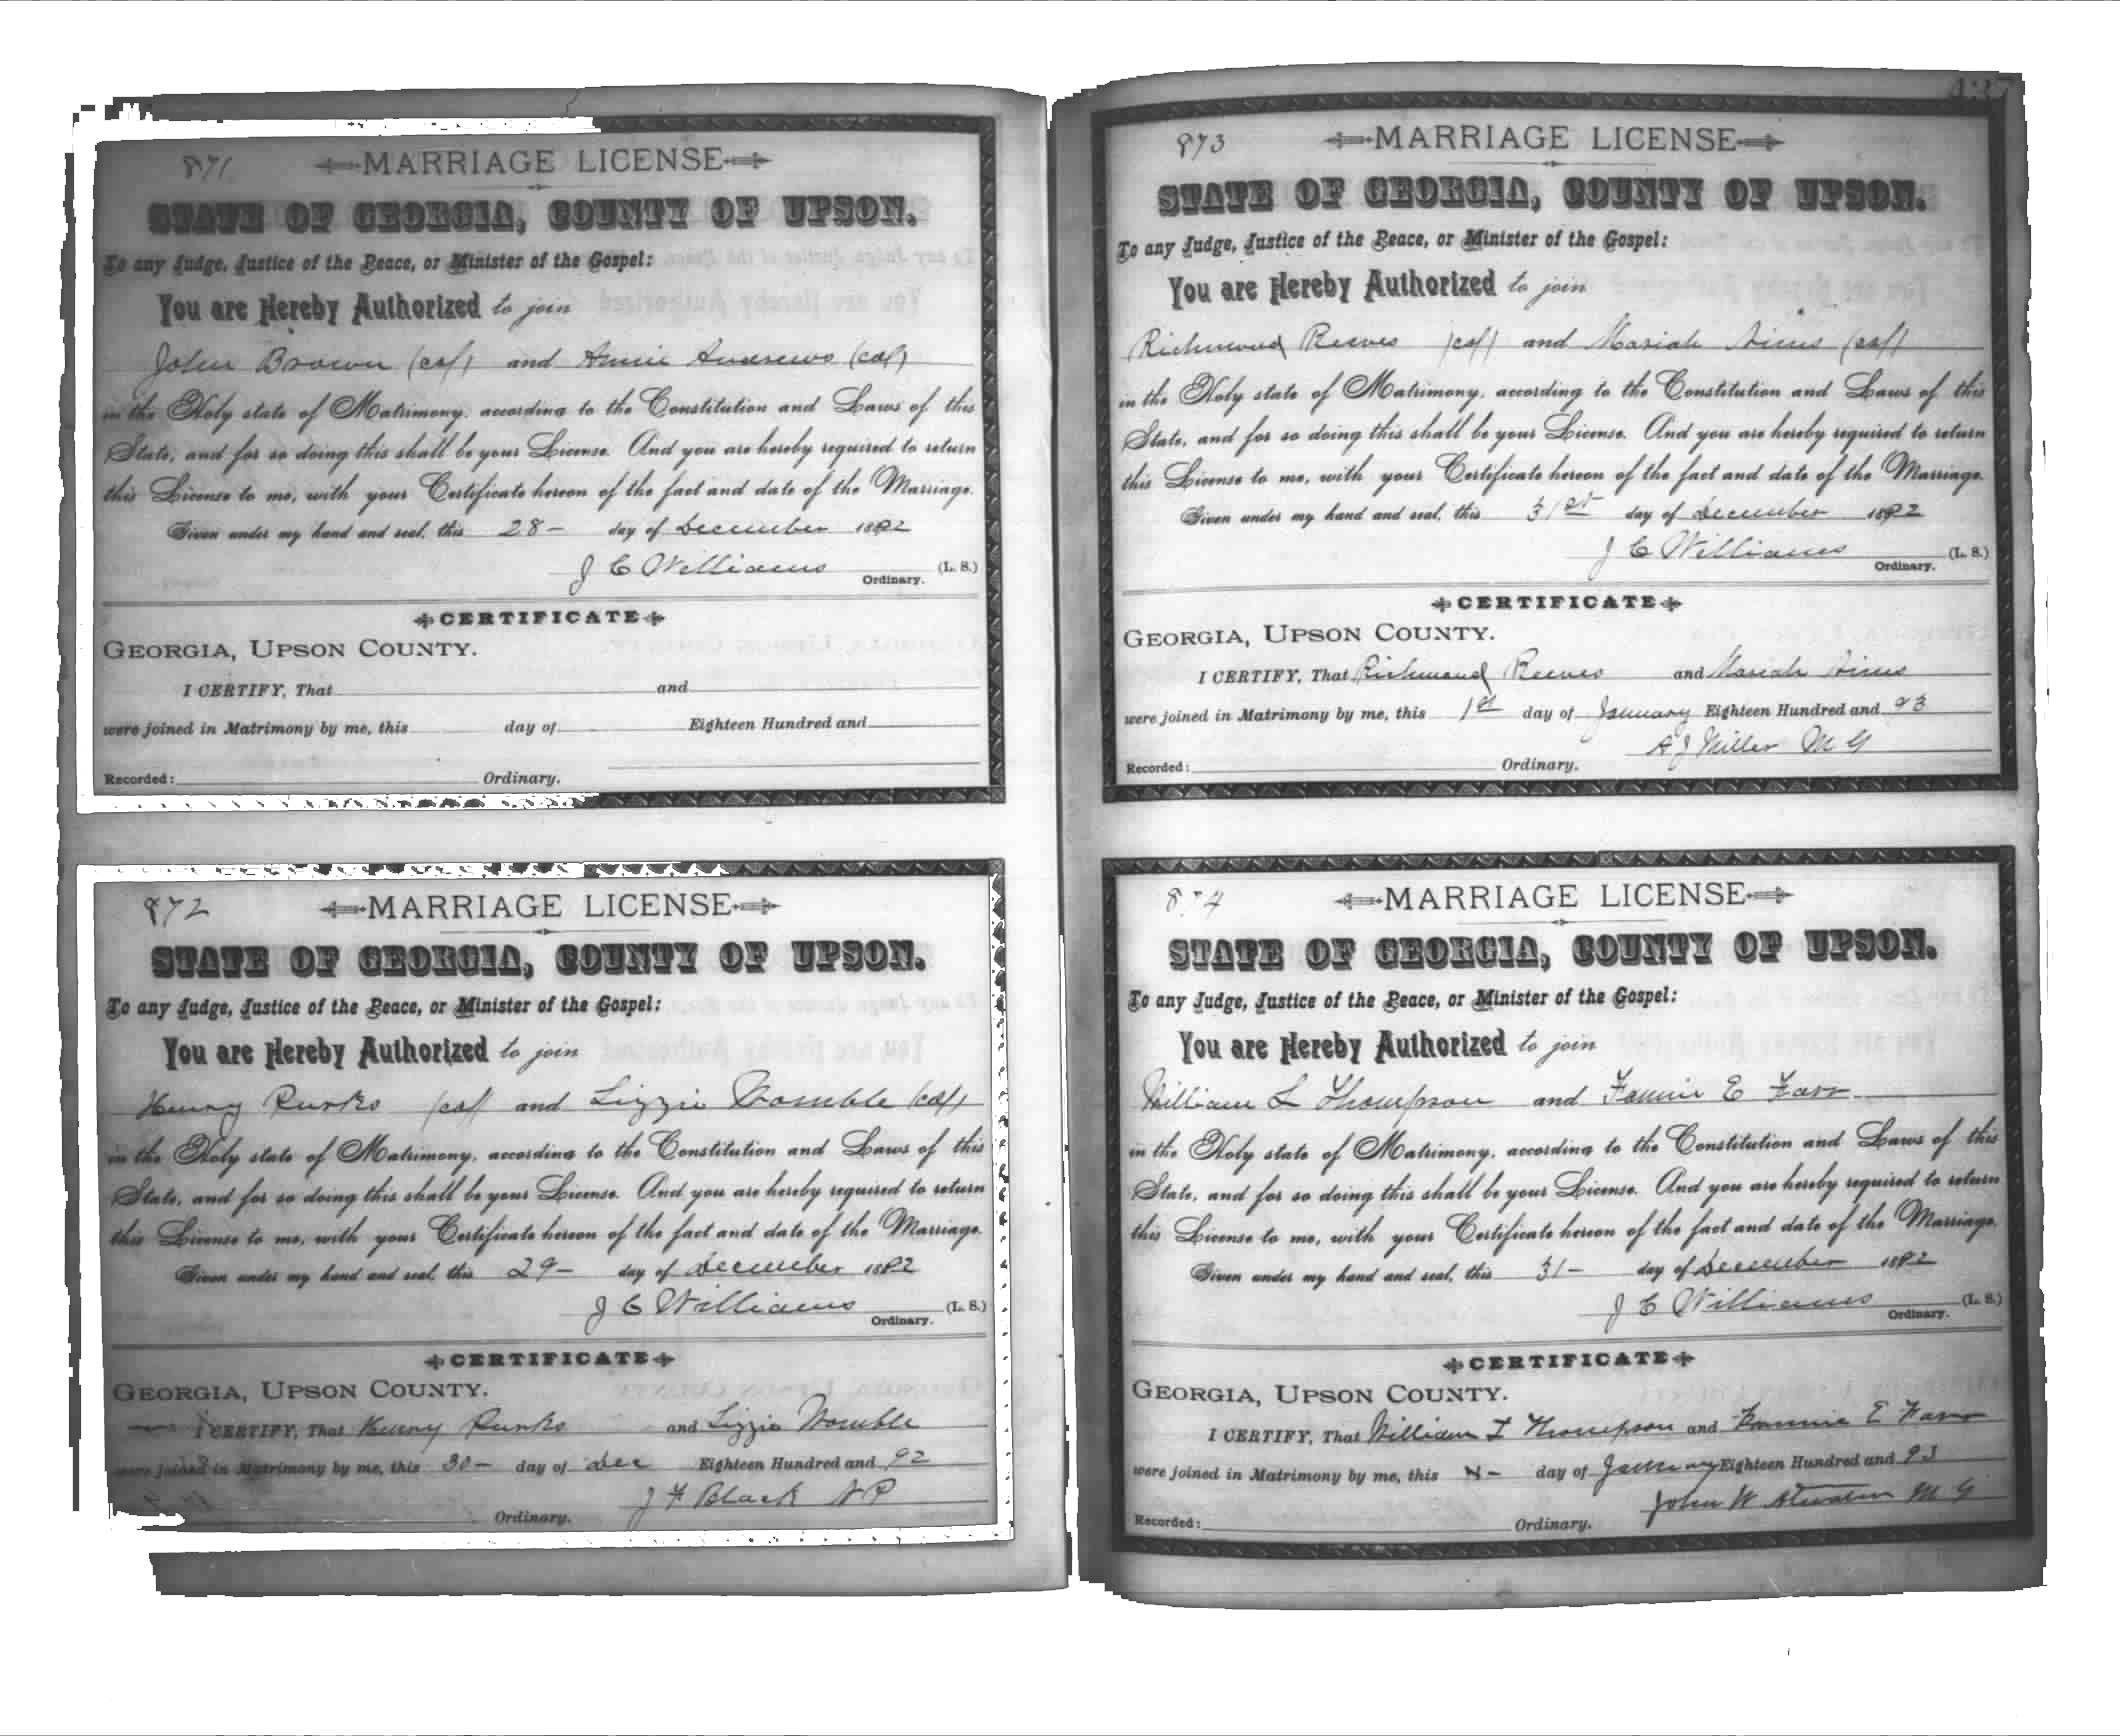 871
MARRIAGE LICENSE
STATE OF GEORGIA, COUNTY OF UPSON.
To any Judge, Justice of the Peace, or Minister of the Gospel:
You are Hereby Authorized to join
John Brown (col) and Annie Andrews (col)
in the Holy state of Matrimony, according to the Constitution and Laws of this
State, and for so doing this shall be your License. And you are hereby required to return
this License to me, with your Certificate hereon of the fact and date of the Marriage.
Given under my hand and seal, this 28- day of December 1892
J C Williams (L. S.)
Ordinary.
CERTIFICATE
GEORGIA, UPSON COUNTY.
I CERTIFY, That and
were joined in Matrimony by me, this day of Eighteen Hundred and
Recorded: Ordinary.
872
MARRIAGE LICENSE
STATE OF GEORGIA, COUNTY OF UPSON.
To any Judge, Justice of the Peace, or Minister of the Gospel:
You are Hereby Authorized to join
Henry Runks (col) and Lizzie Womble (col)
in the Holy state of Matrimony, according to the Constitution and Laws of this
State, and for so doing this shall be your License. And you are hereby required to return
this License to me, with your Certificate hereon of the fact and date of the Marriage.
Given under my hand and seal, this 29- day of December 1892
J C Williams (L. S.)
Ordinary.
CERTIFICATE
GEORGIA, UPSON COUNTY.
I CERTIFY, That Henry Runks and Lizzie Womble
were joined in Matrimony by me, this 30- day of Dec Eighteen Hundred and 92
J F Black N P
Ordinary.
437
873
MARRIAGE LICENSE
STATE OF GEORGIA, COUNTY OF UPSON.
To any Judge, Justice of the Peace, or Minister of the Gospel:
You are Hereby Authorized to join
Richmond Reeves (col) and Mariah (col)
in the Holy state of Matrimony, according to the Constitution and Laws of this
State, and for so doing this shall be your License. And you are hereby required to return
this License to me, with your Certificate hereon of the fact and date of the Marriage.
Given under my hand and seal, this 31st day of December 1892
J C Williams (L. S.)
Ordinary.
CERTIFICATE
GEORGIA, UPSON COUNTY.
I CERTIFY, That Richmond Reeves and Mariah
were joined in Matrimony by me, this 1st day of January Eighteen Hundred and 93
A J Miller M G
Recorded: Ordinary.
874
MARRIAGE LICENSE
STATE OF GEORGIA, COUNTY OF UPSON.
To any Judge, Justice of the Peace, or Minister of the Gospel:
You are Hereby Authorized to join
William L Thompson and Fannie E Farr
in the Holy state of Matrimony, according to the Constitution and Laws of this
State, and for so doing this shall be your License. And you are hereby required to return
this License to me, with your Certificate hereon of the fact and date of the Marriage.
Given under my hand and seal, this 31- day of December 1892
J C Williams (L. S.)
Ordinary.
CERTIFICATE
GEORGIA, UPSON COUNTY.
I CERTIFY, That William L Thompson and Fannie E Farr
were joined in Matrimony by me, this day of January Eighteen Hundred and 93
John W M G
Recorded: Ordinary.